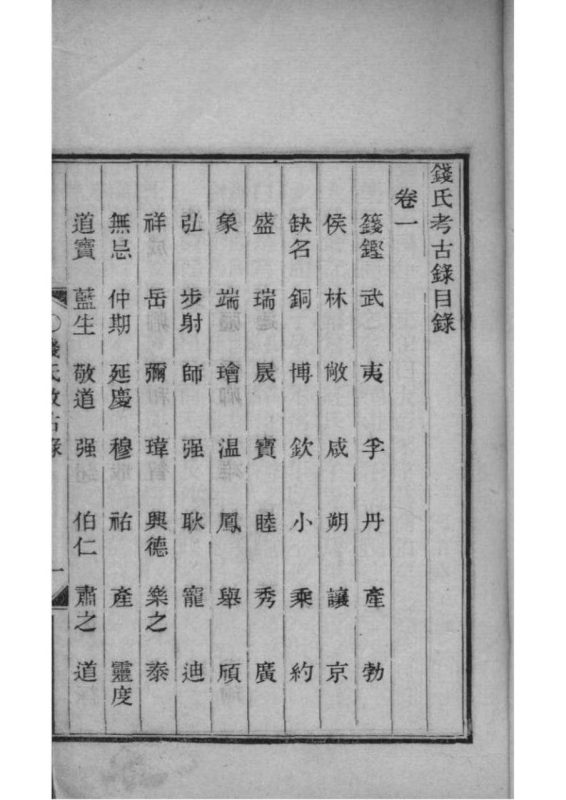 錢氏考古錄目錄
卷一
籛鏗 武 夷 孚 丹 產 勃
侯 林 敞 咸 朔 讓 京
缺名 銅 博 欽 小 乘 約
盛 瑞 晟 寶 睦 秀 廣
象 端 璯 溫 鳳 舉 頎
弘 步射 師 强 耿 寵 迪
祥 岳 彌 瑋 興德 樂之 泰
無忌 仲期 延慶 穆 祐 產 靈度
道寶 藍生 敬道 强 伯仁 肅之 道
錢氏攷古錄 一